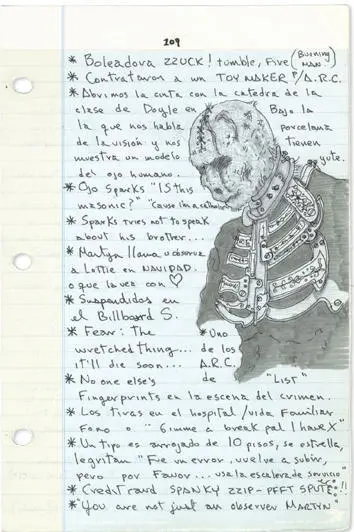 109
* Boleadora ZZUCK! tumble, Five (Burning MAN.)
* Contrataron a un TOY MAKER P/A.R.C.
* Abrimos la cinta con la catedra de la
clase de Doyle en
la que nos habla
de la visión y nos
muestra un modelo
del ojo humano.
Bajo la
porcelana
tienen
yute.
* Ojo Sparks "IS this
masonic?" "Cause I'm a catholic
* Sparks tries not to speak
about his brother...
* Martyn llama u observa
a Lottie en NAVIDAD.
o que la vez con ♡
* Suspendidos en
el Billboard S.
* Fear: The
wretched thing...
it'll die soon...
* Uno
de los
A.R.C.
* No one else's
de "LIST"
Fingerprints en la escena del crimen.
* Los tiras en el hospital/vida familiar
Fono o "Gimme a break pal I have X"
* Un tipo es arrojado de 10 pisos, se estrella,
legritan "Fue un error, vuelve a subir,
pero por Favor... usa la escalera de servicio"
* Credit card SPANKY ZZIP-PFFT SPUTE!!
* "You are not just an observer MARTYN"